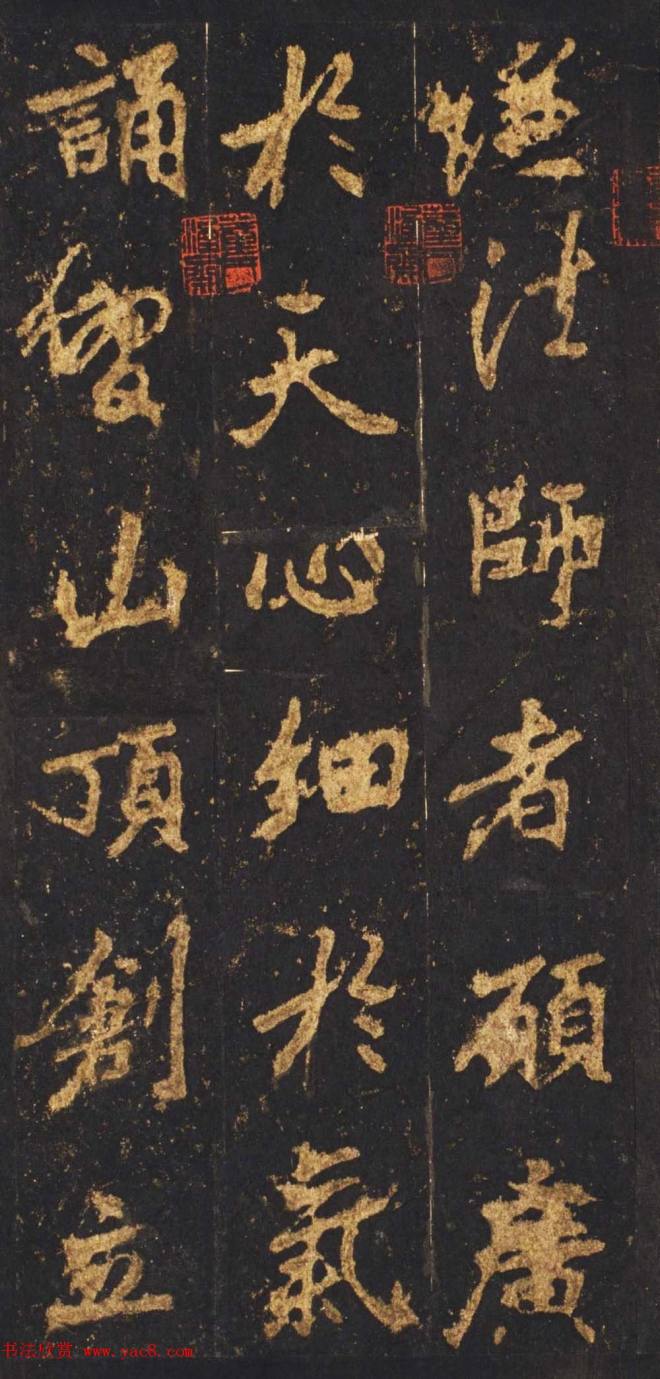 法師者願廣
於天心細於氣
誦山頂創立
书法欣赏 www.yac8.com